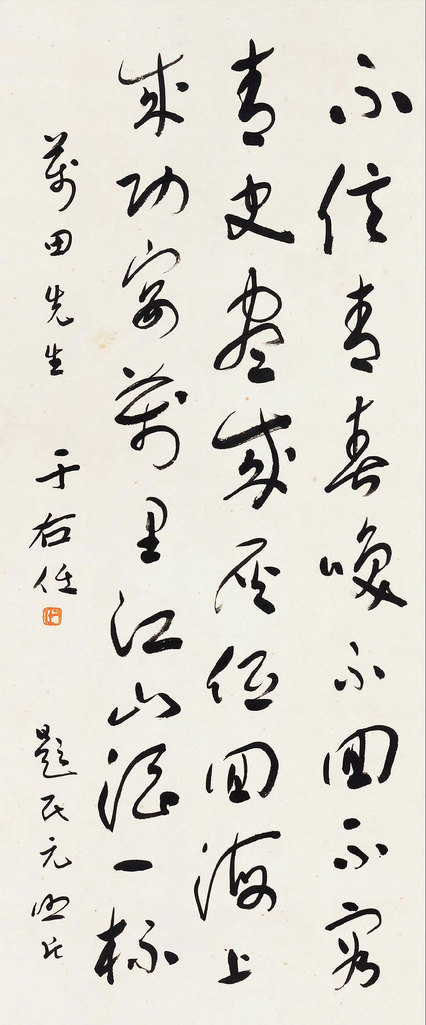 不信青春喚不回不容
青史盡成灰低回海上
成功宴萬里江山酒一杯
萬田先生 于右任 題民元照片